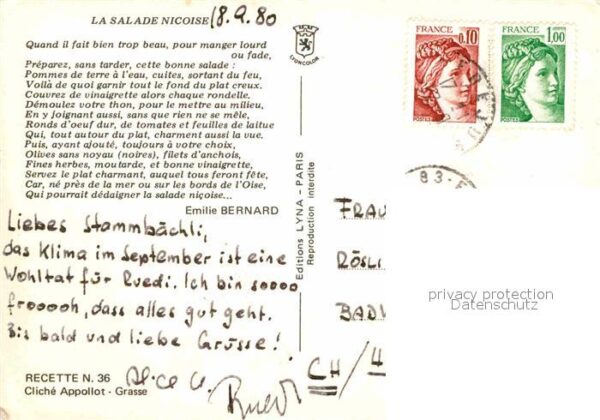 LA SALADE NICOISE
18.9.80
Quand il fait bien trop beau, pour manger lourd
ou fade,
Préparez, sans tarder, cette bonne salade :
Pommes de terre à l'eau, cuites, sortant du feu,
Voilà de quoi garnir tout le fond du plat creux.
Couvrez de vinaigrette alors chaque rondelle.
Démoulez votre thon, pour le mettre au milieu,
En y joignant aussi, sans que rien ne se mêle,
Ronds d'oeuf dur, de tomates et feuilles de laitue
Qui, tout autour du plat, charment aussi la vue.
Puis, ayant ajouté, toujours à votre choix,
Olives sans noyau (noires), filets d'anchois,
Fines herbes, moutarde, et bonne vinaigrette,
Servez le plat charmant, auquel tous feront fête,
Car, né près de la mer ou sur les bords de l'Oise,
Qui pourrait dédaigner la salade niçoise...
Emilie BERNARD
Liebes Stammbächli,
das Klima im September ist eine
Wohltat für Ruedi. Ich bin soooo
frooooh, dass alles gut geht.
Bis bald und liebe Grüsse!
Alice u.
Ruedi
RECETTE N. 36
Cliché Appollot - Grasse
LYONCOLOR
Editions LYNA - PARIS
Reproduction interdite
FRANCE
0,10
POSTES
FRANCE
1,00
POSTES
83
FRAU
RÖSLI
BADW
CH/
privacy protection
Datenschutz